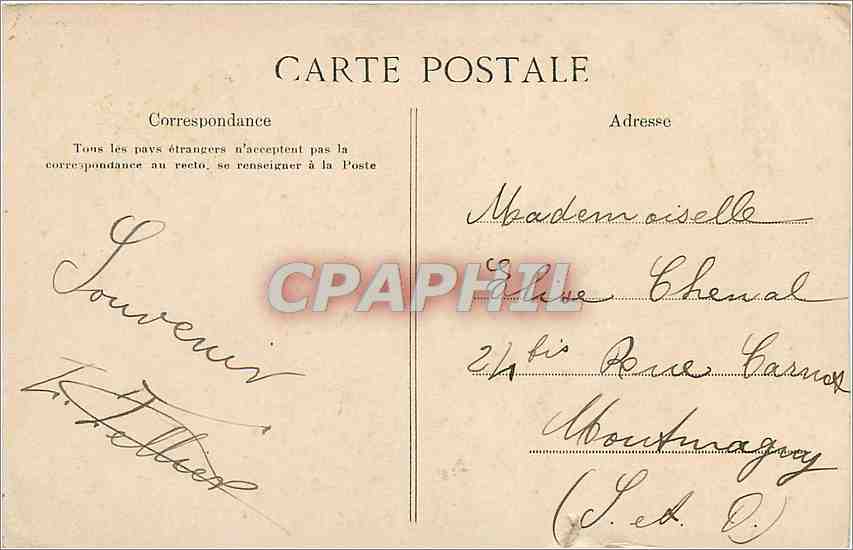 CARTE POSTALE
Correspondance
Tous les pays étrangers n'acceptent pas la
correspondance au recto, se renseigner à la Poste
Souvenir
Tellier
Adresse
Mademoiselle
Elise Chenal
24 bis Rue Carnot
Montmagny
(S. et O.)
CPAPHIL